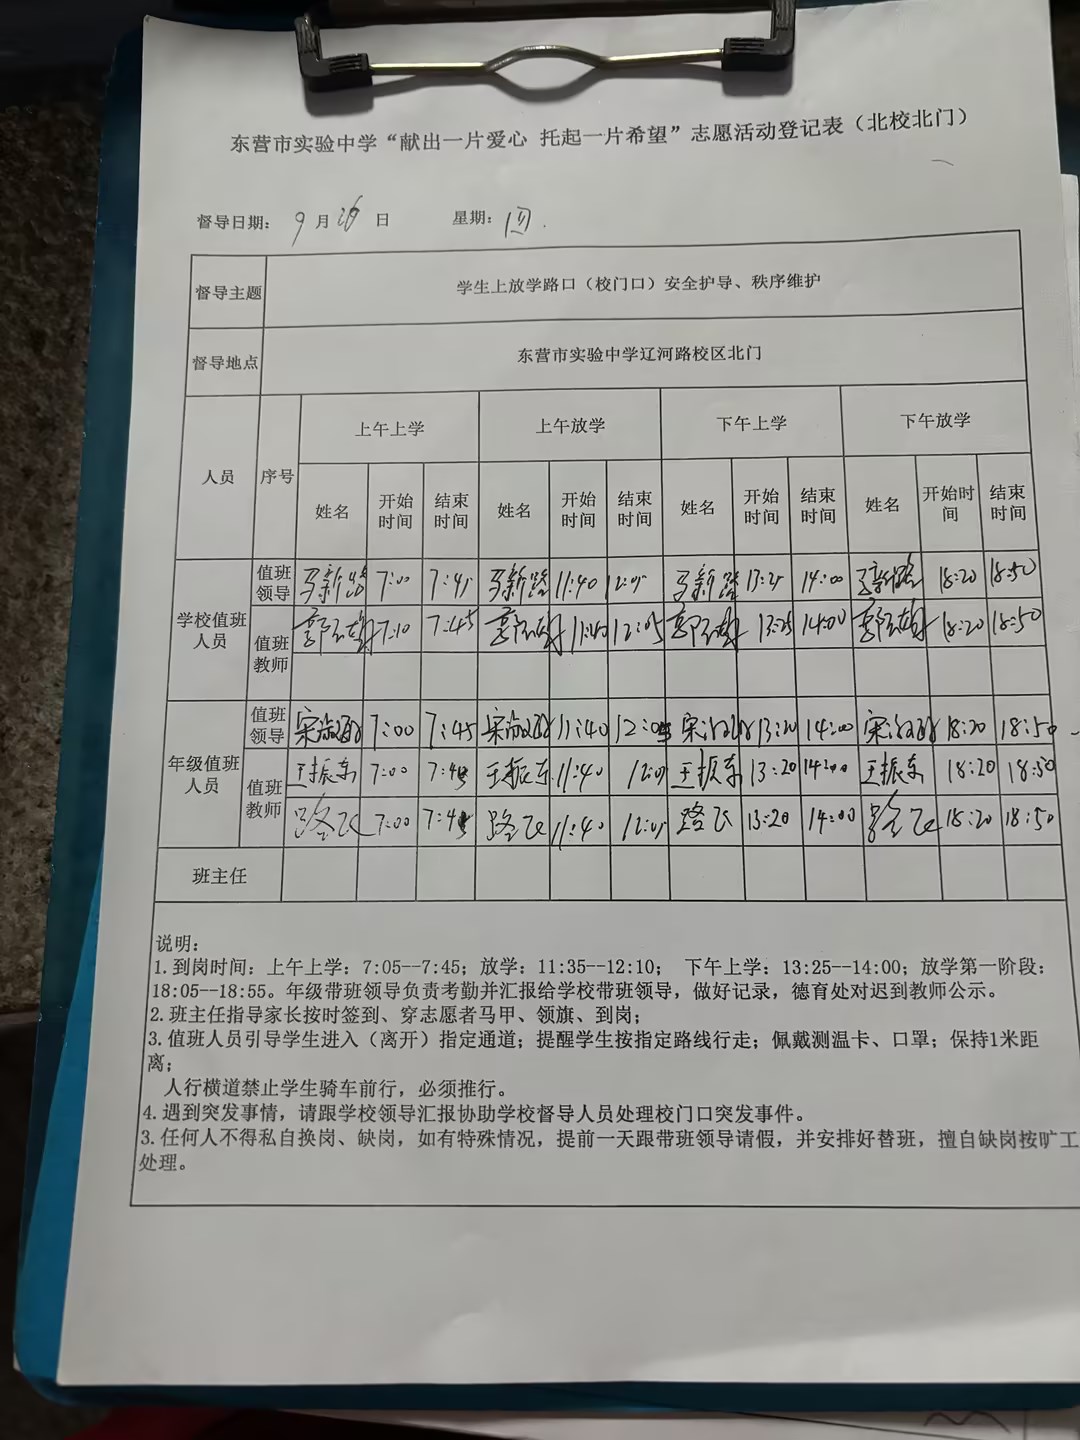 东营市实验中学“献出一片爱心 托起一片希望”志愿活动登记表（北校北门）
督导日期： 9 月 26 日 星期： 四
督导主题 学生上放学路口（校门口）安全护导、秩序维护
督导地点 东营市实验中学辽河路校区北门
人员 序号 上午上学 上午放学 下午上学 下午放学
姓名 开始时间 结束时间 姓名 开始时间 结束时间 姓名 开始时间 结束时间 姓名 开始时间 结束时间
学校值班人员 值班领导 7:00 7:45 11:40 12:05 13:25 14:00 18:20 18:50
值班教师 7:10 7:45 11:40 12:05 13:25 14:00 18:20 18:50
年级值班人员 值班领导 7:00 7:45 11:40 12:05 13:20 14:00 18:20 18:50
值班教师 王振东 7:00 7:45 王振东 11:40 12:05 王振东 13:20 14:00 王振东 18:20 18:50
路飞 7:00 7:45 路飞 11:40 12:05 路飞 13:20 14:00 路飞 18:20 18:50
班主任
说明：
1. 到岗时间：上午上学：7:05--7:45；放学：11:35--12:10； 下午上学：13:25--14:00；放学第一阶段：
18:05--18:55。年级带班领导负责考勤并汇报给学校带班领导，做好记录，德育处对迟到教师公示。
2. 班主任指导家长按时签到、穿志愿者马甲、领旗、到岗；
3. 值班人员引导学生进入（离开）指定通道；提醒学生按指定路线行走；佩戴测温卡、口罩；保持1米距
离；
人行横道禁止学生骑车前行，必须推行。
4. 遇到突发事情，请跟学校领导汇报协助学校督导人员处理校门口突发事件。
3. 任何人不得私自换岗、缺岗，如有特殊情况，提前一天跟带班领导请假，并安排好替班，擅自缺岗按旷工
处理。